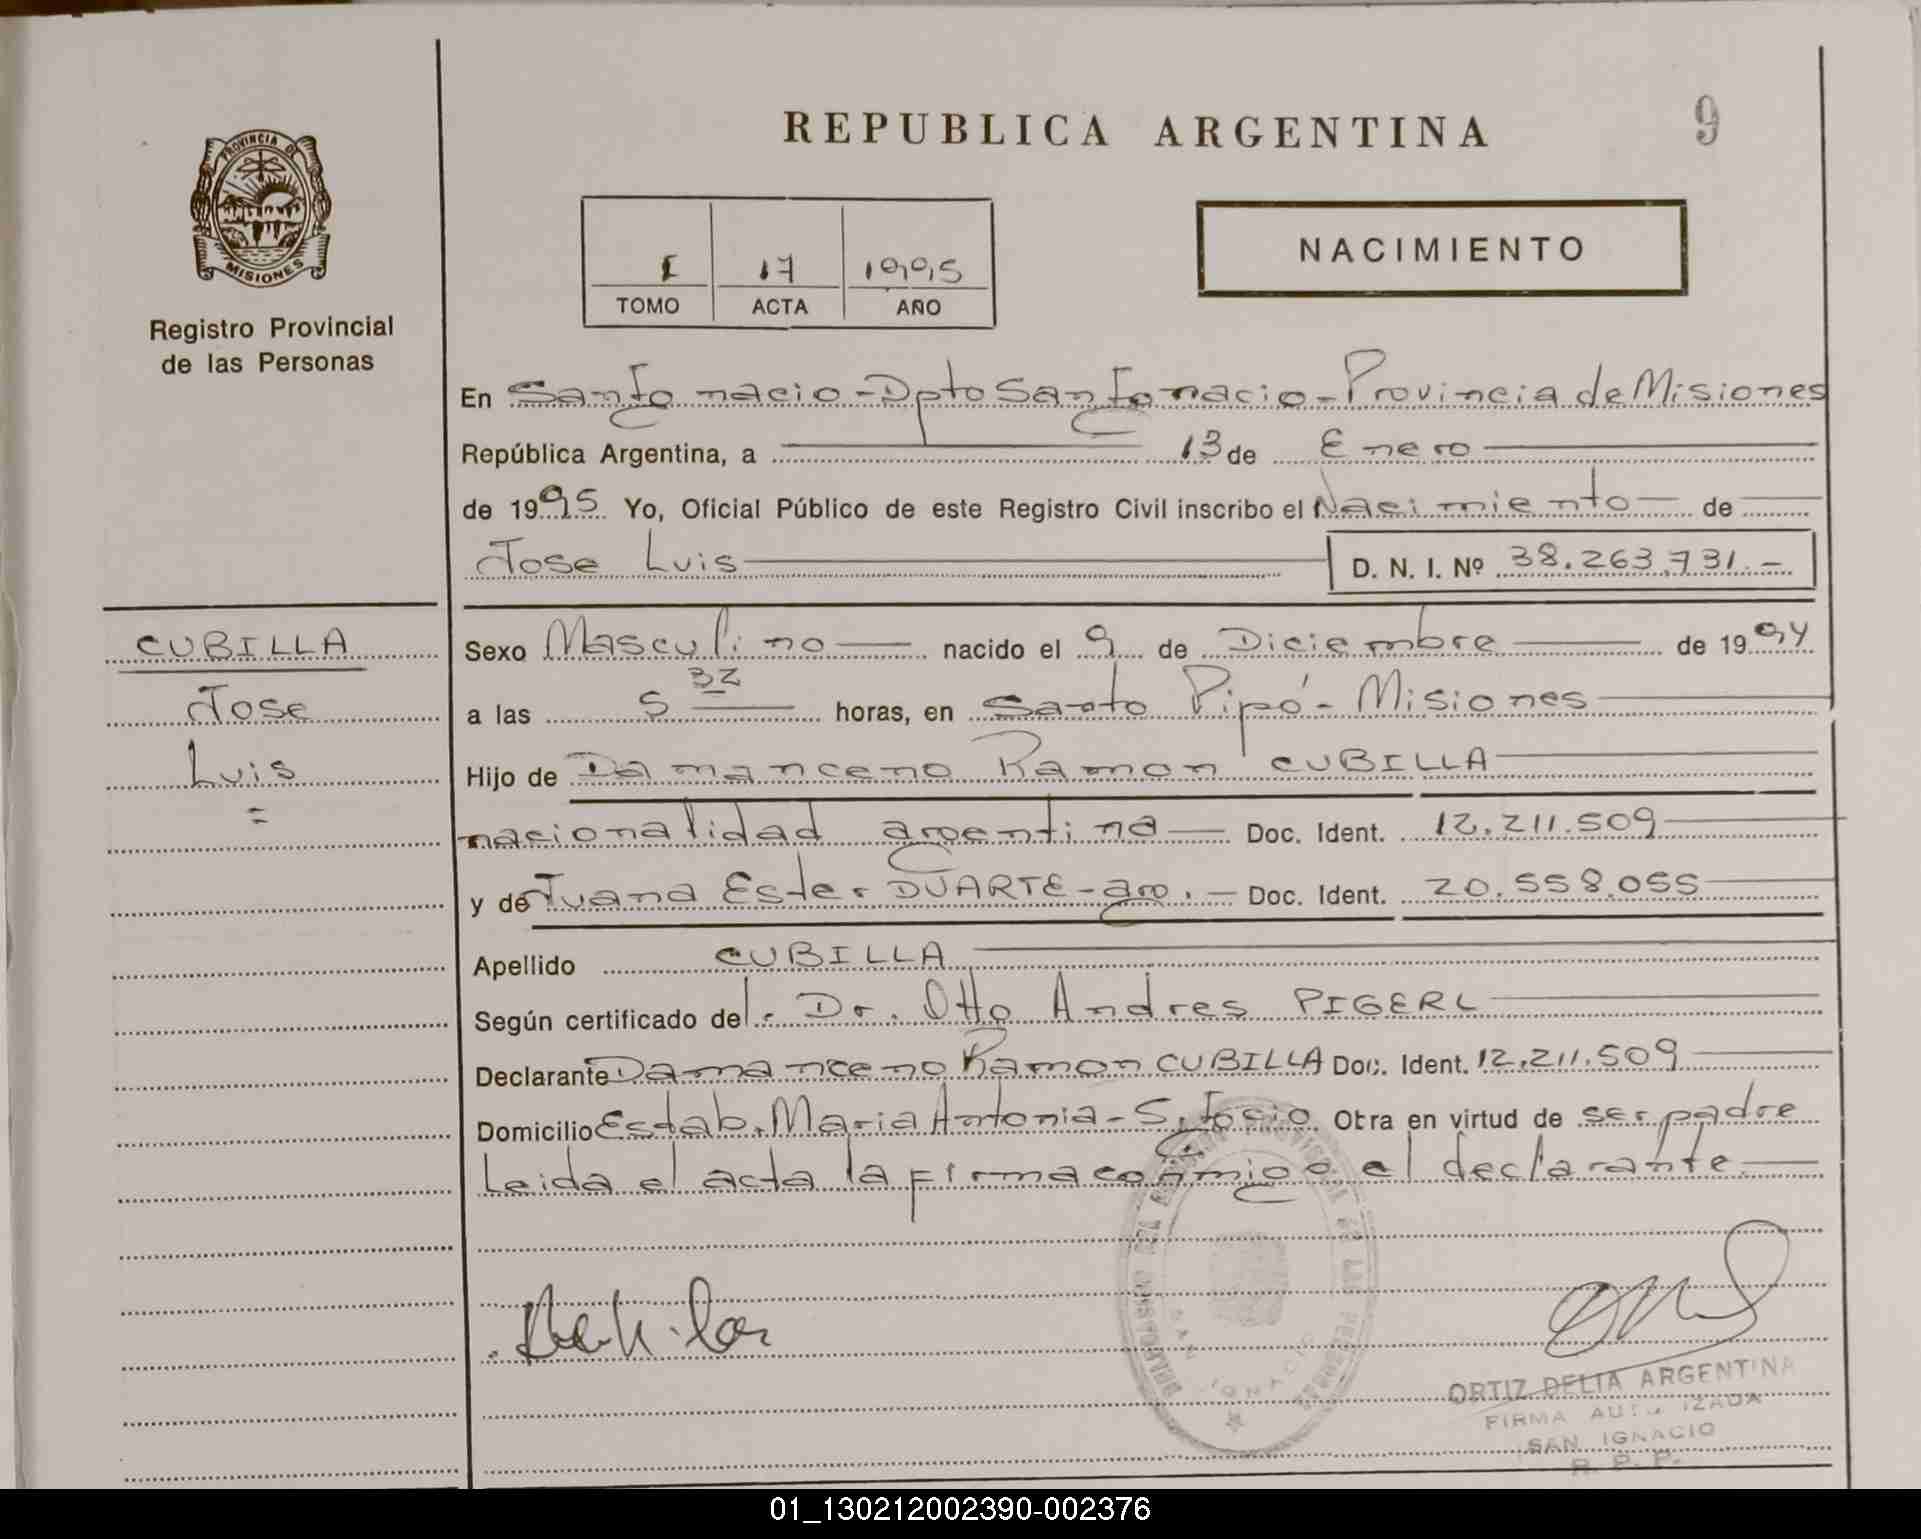 REPUBLICA ARGENTINA
9
PROVINCIA DE
MISIONES
Registro Provincial
de las Personas
I 17 1995
TOMO ACTA AÑO
NACIMIENTO
En San Ignacio - Dpto San Ignacio - Provincia de Misiones
República Argentina, a 13 de Enero
de 1995 Yo, Oficial Público de este Registro Civil inscribo el Nacimiento de
Jose Luis D. N. I. Nº 38.263.731.-
CUBILLA
Jose
Luis
=
Sexo Masculino nacido el 9 de Diciembre de 1994
a las 5 32 horas, en Santo Pipó - Misiones
Hijo de Damanceno Ramon CUBILLA
nacionalidad argentina Doc. Ident. 12.211.509
y de Juana Ester DUARTE - arg. - Doc. Ident. 20.558.055
Apellido CUBILLA
Según certificado del. Dr. Otto Andres PIGERL
Declarante Damanceno Ramon CUBILLA Doc. Ident. 12.211.509
Domicilio Estab. Maria Antonia - S. Igcio Otra en virtud de ser padre
Leida el acta la firma conmigo el declarante
SAN IGNACIO
ORTIZ DELIA ARGENTINA
FIRMA AUTORIZADA
SAN IGNACIO
R. P. P.
01_130212002390-002376